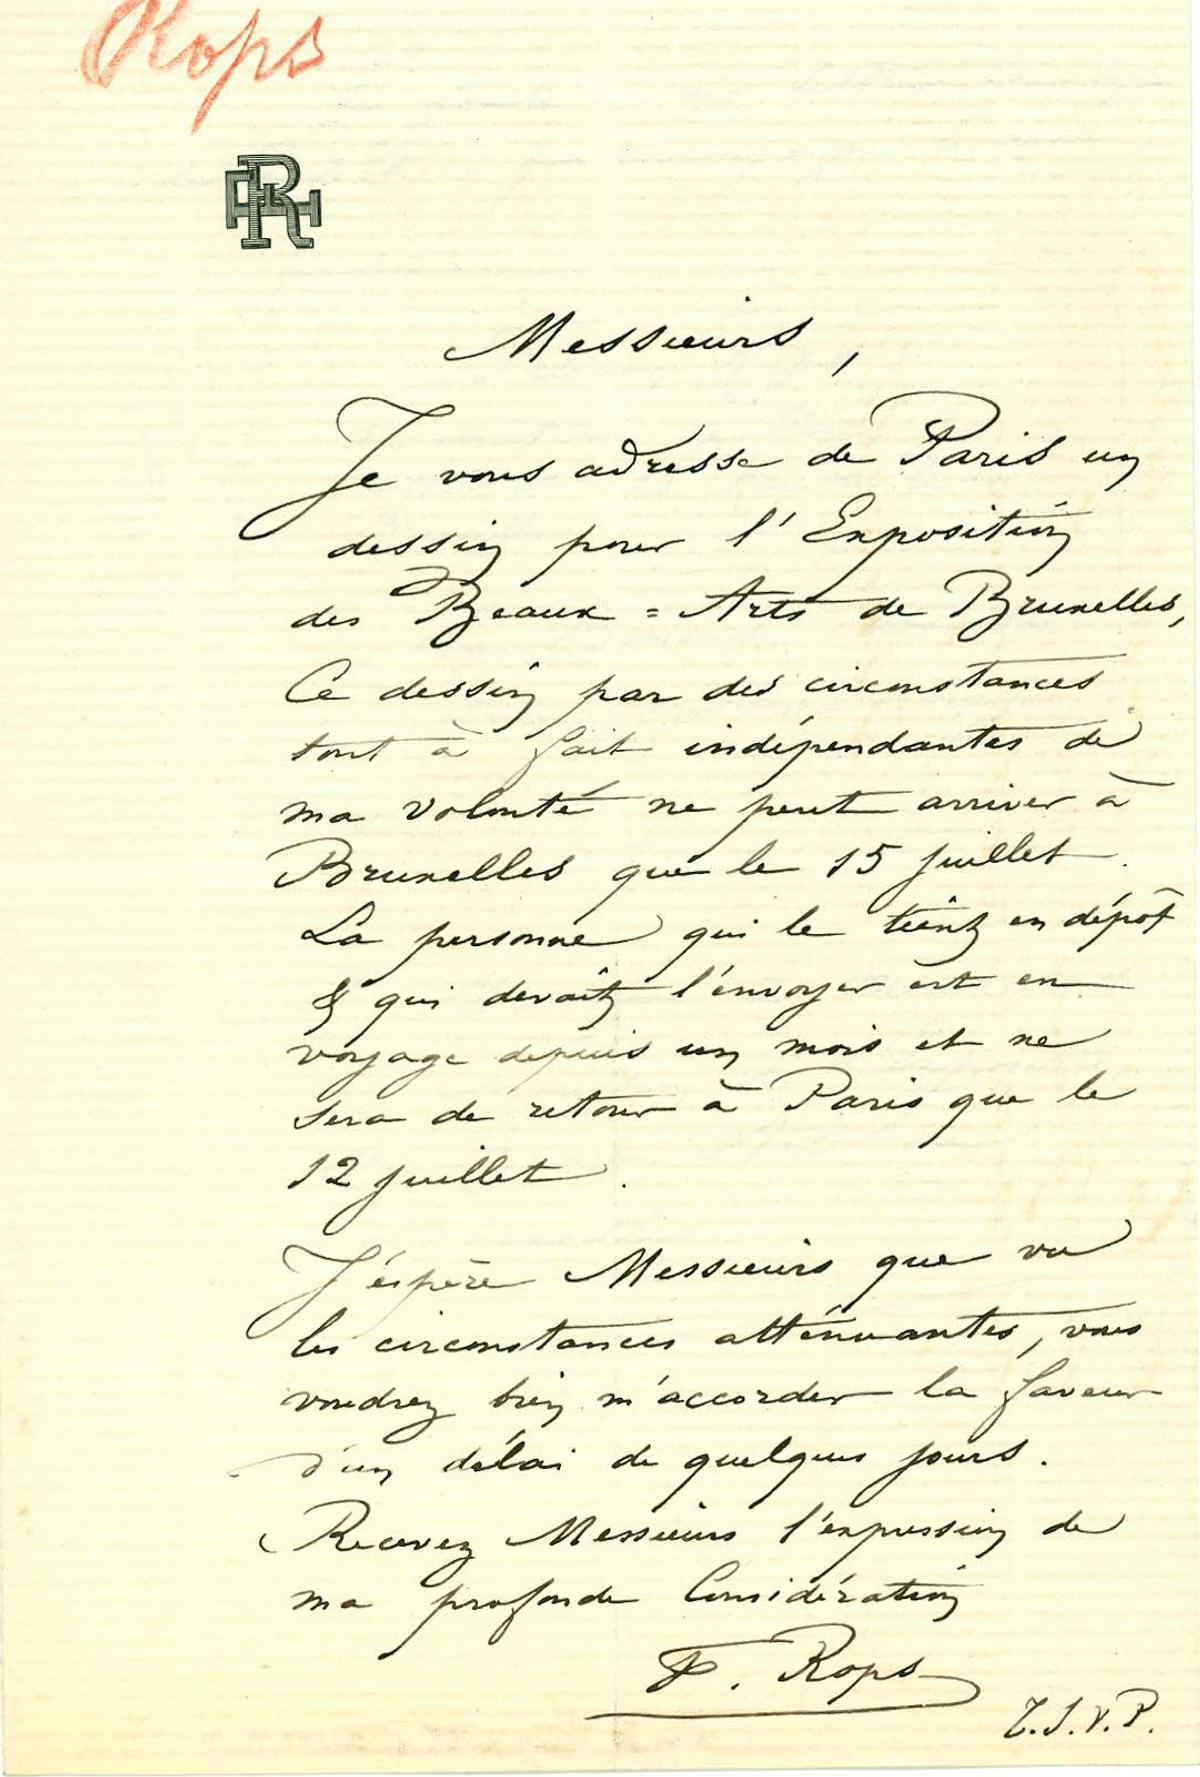 Rops
Messieurs,
Je vous adresse de Paris un
dessin pour l'Exposition
des Beaux=Arts de Bruxelles,
Ce dessin par des circonstances
tout à fait indépendantes de
ma volonté ne peut arriver à
Bruxelles que le 15 juillet.
La personne qui le tient en dépôt
& qui devait l'envoyer est en
voyage depuis un mois et ne
sera de retour à Paris que le
12 juillet.
J'éspère Messieurs que vu
les circonstances atténuantes, vous
voudrez bien m'accorder la faveur
d'un délai de quelques jours.
Recevez Messieurs l'expression de
ma profonde Considération
F. Rops
T.S.V.P.